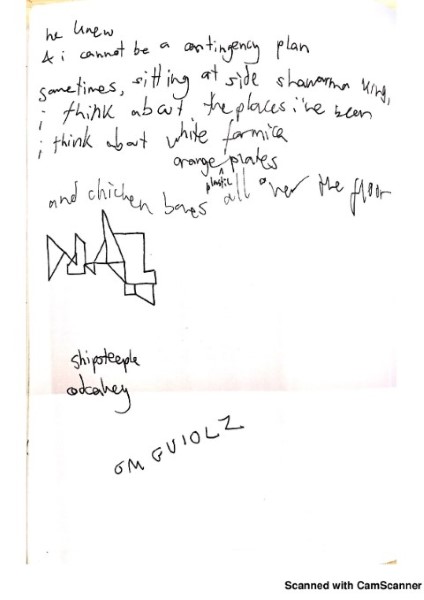 he knew
& i cannot be a contingency plan
sometimes, sitting at side shawarma king,
i think about the places i've been
i think about white formica
orange plastic plates
and chicken bones all over the floor
shipsteeple
OMGUIOLZ
Scanned with CamScanner